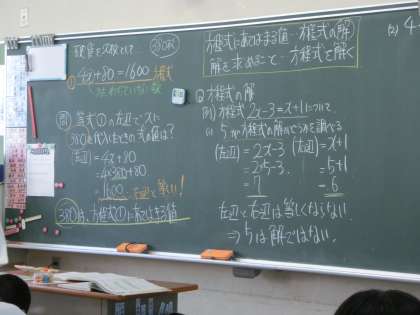 380円
① 4x+80=1600
わかっていない数
方程式にあてはまる値…方程式の解
解を求めること…方程式を解く
(2) 4
問 等式①の左辺でxに
380を代入したときの式の値は?
(左辺) = 4x+80
= 4×380+80
= 1600 右辺と等しい!
380は、方程式①にあてはまる値
◎方程式の解
例) 方程式 2x-3=x+1 について
(1) 5が方程式の解かどうかを調べる
(左辺) = 2x-3 (右辺) = x+1
= 2×5-3 = 5+1
= 7 = 6
左辺と右辺は等しくならない。
⇒ 5は解ではない。